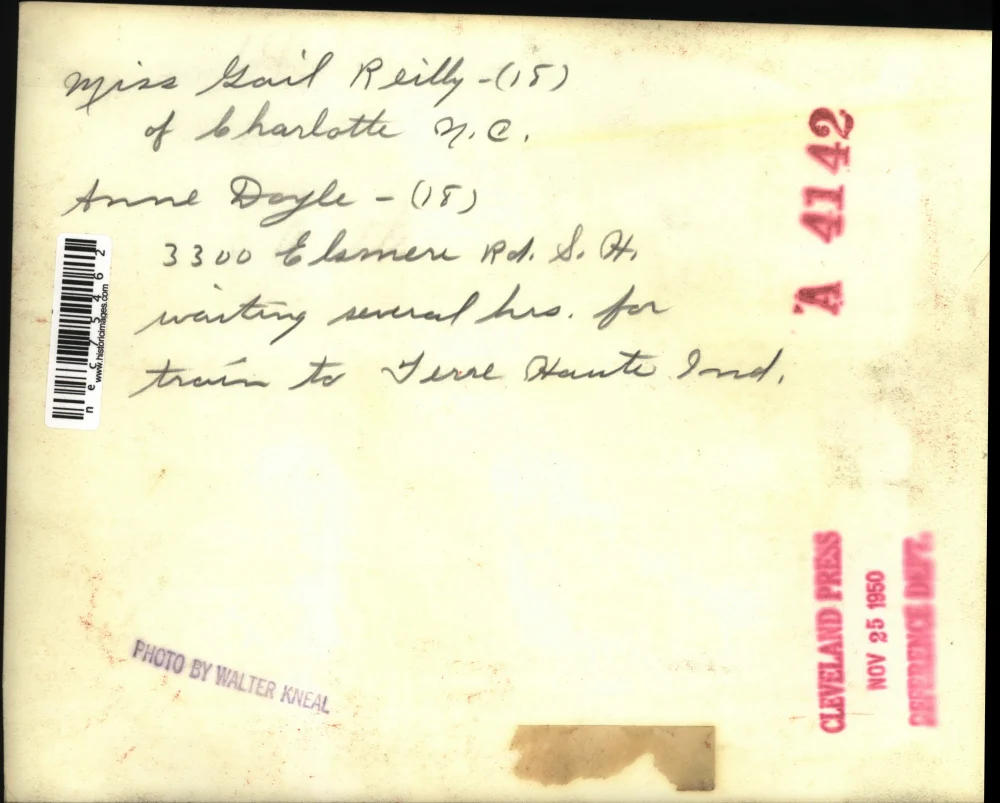 Miss Gail Reilly - (18)
of Charlotte N.C.
Anne Doyle - (18)
3300 Elsmere Rd. S. H.
waiting several hrs. for
train to Terre Haute Ind.
A 4142
nec75462
www.historicimages.com
CLEVELAND PRESS
NOV 25 1950
REFERENCE DEPT.
PHOTO BY WALTER KNEAL